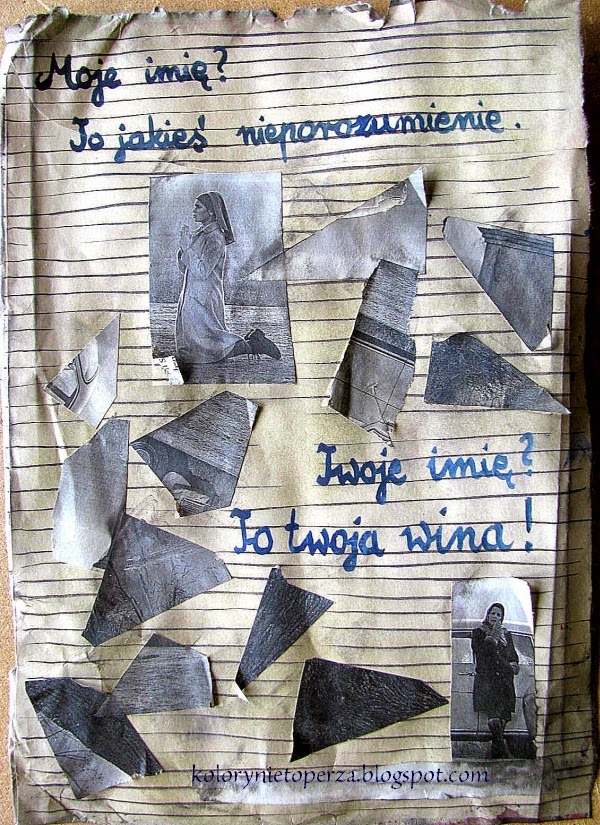 Moje imię?
To jakieś nieporozumienie.
Twoje imię?
To twoja wina!
kolorynietoperza.blogspot.com